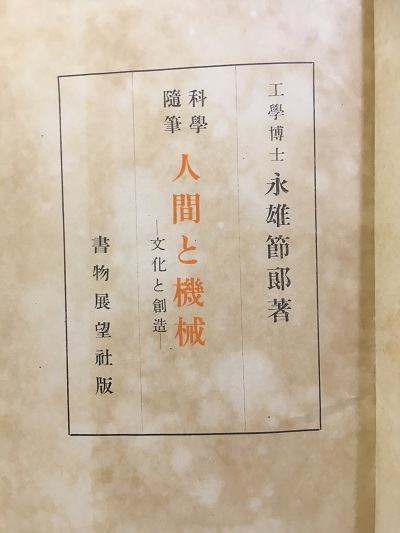 工學博士 永雄節郎著
科學
隨筆
人間と機械
—文化と創造—
書物展望社版